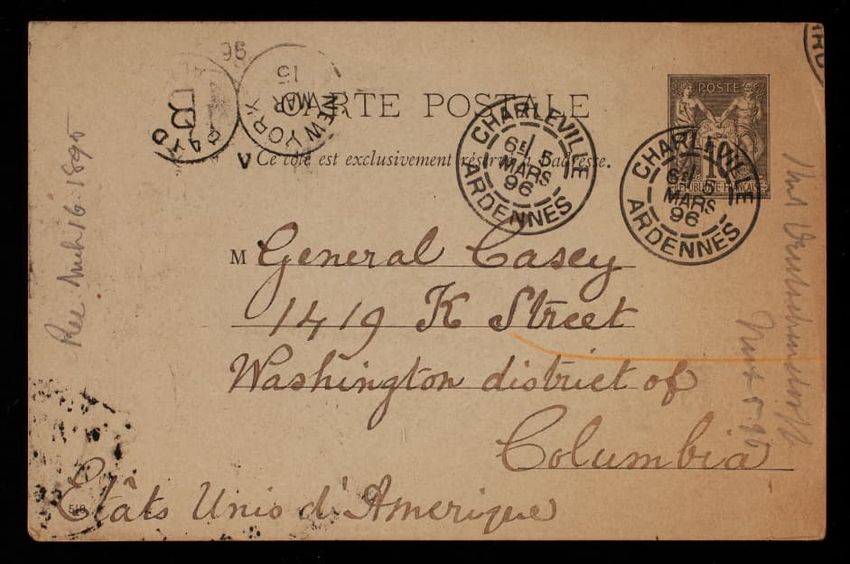 96
NEW YORK
MAR
15
CARTE POSTALE
Ce côté est exclusivement réservé à l'adresse.
CHARLEVILLE
6E 5
MARS
96
ARDENNES
POSTE
10
REPUBLIQUE FRANCAISE
CHARLEVILLE
6E 5
MARS
96
ARDENNES
M General Casey
1419 K Street
Washington district of
Columbia
Etâts Unis d'Amerique
Rec Mch 16. 1895